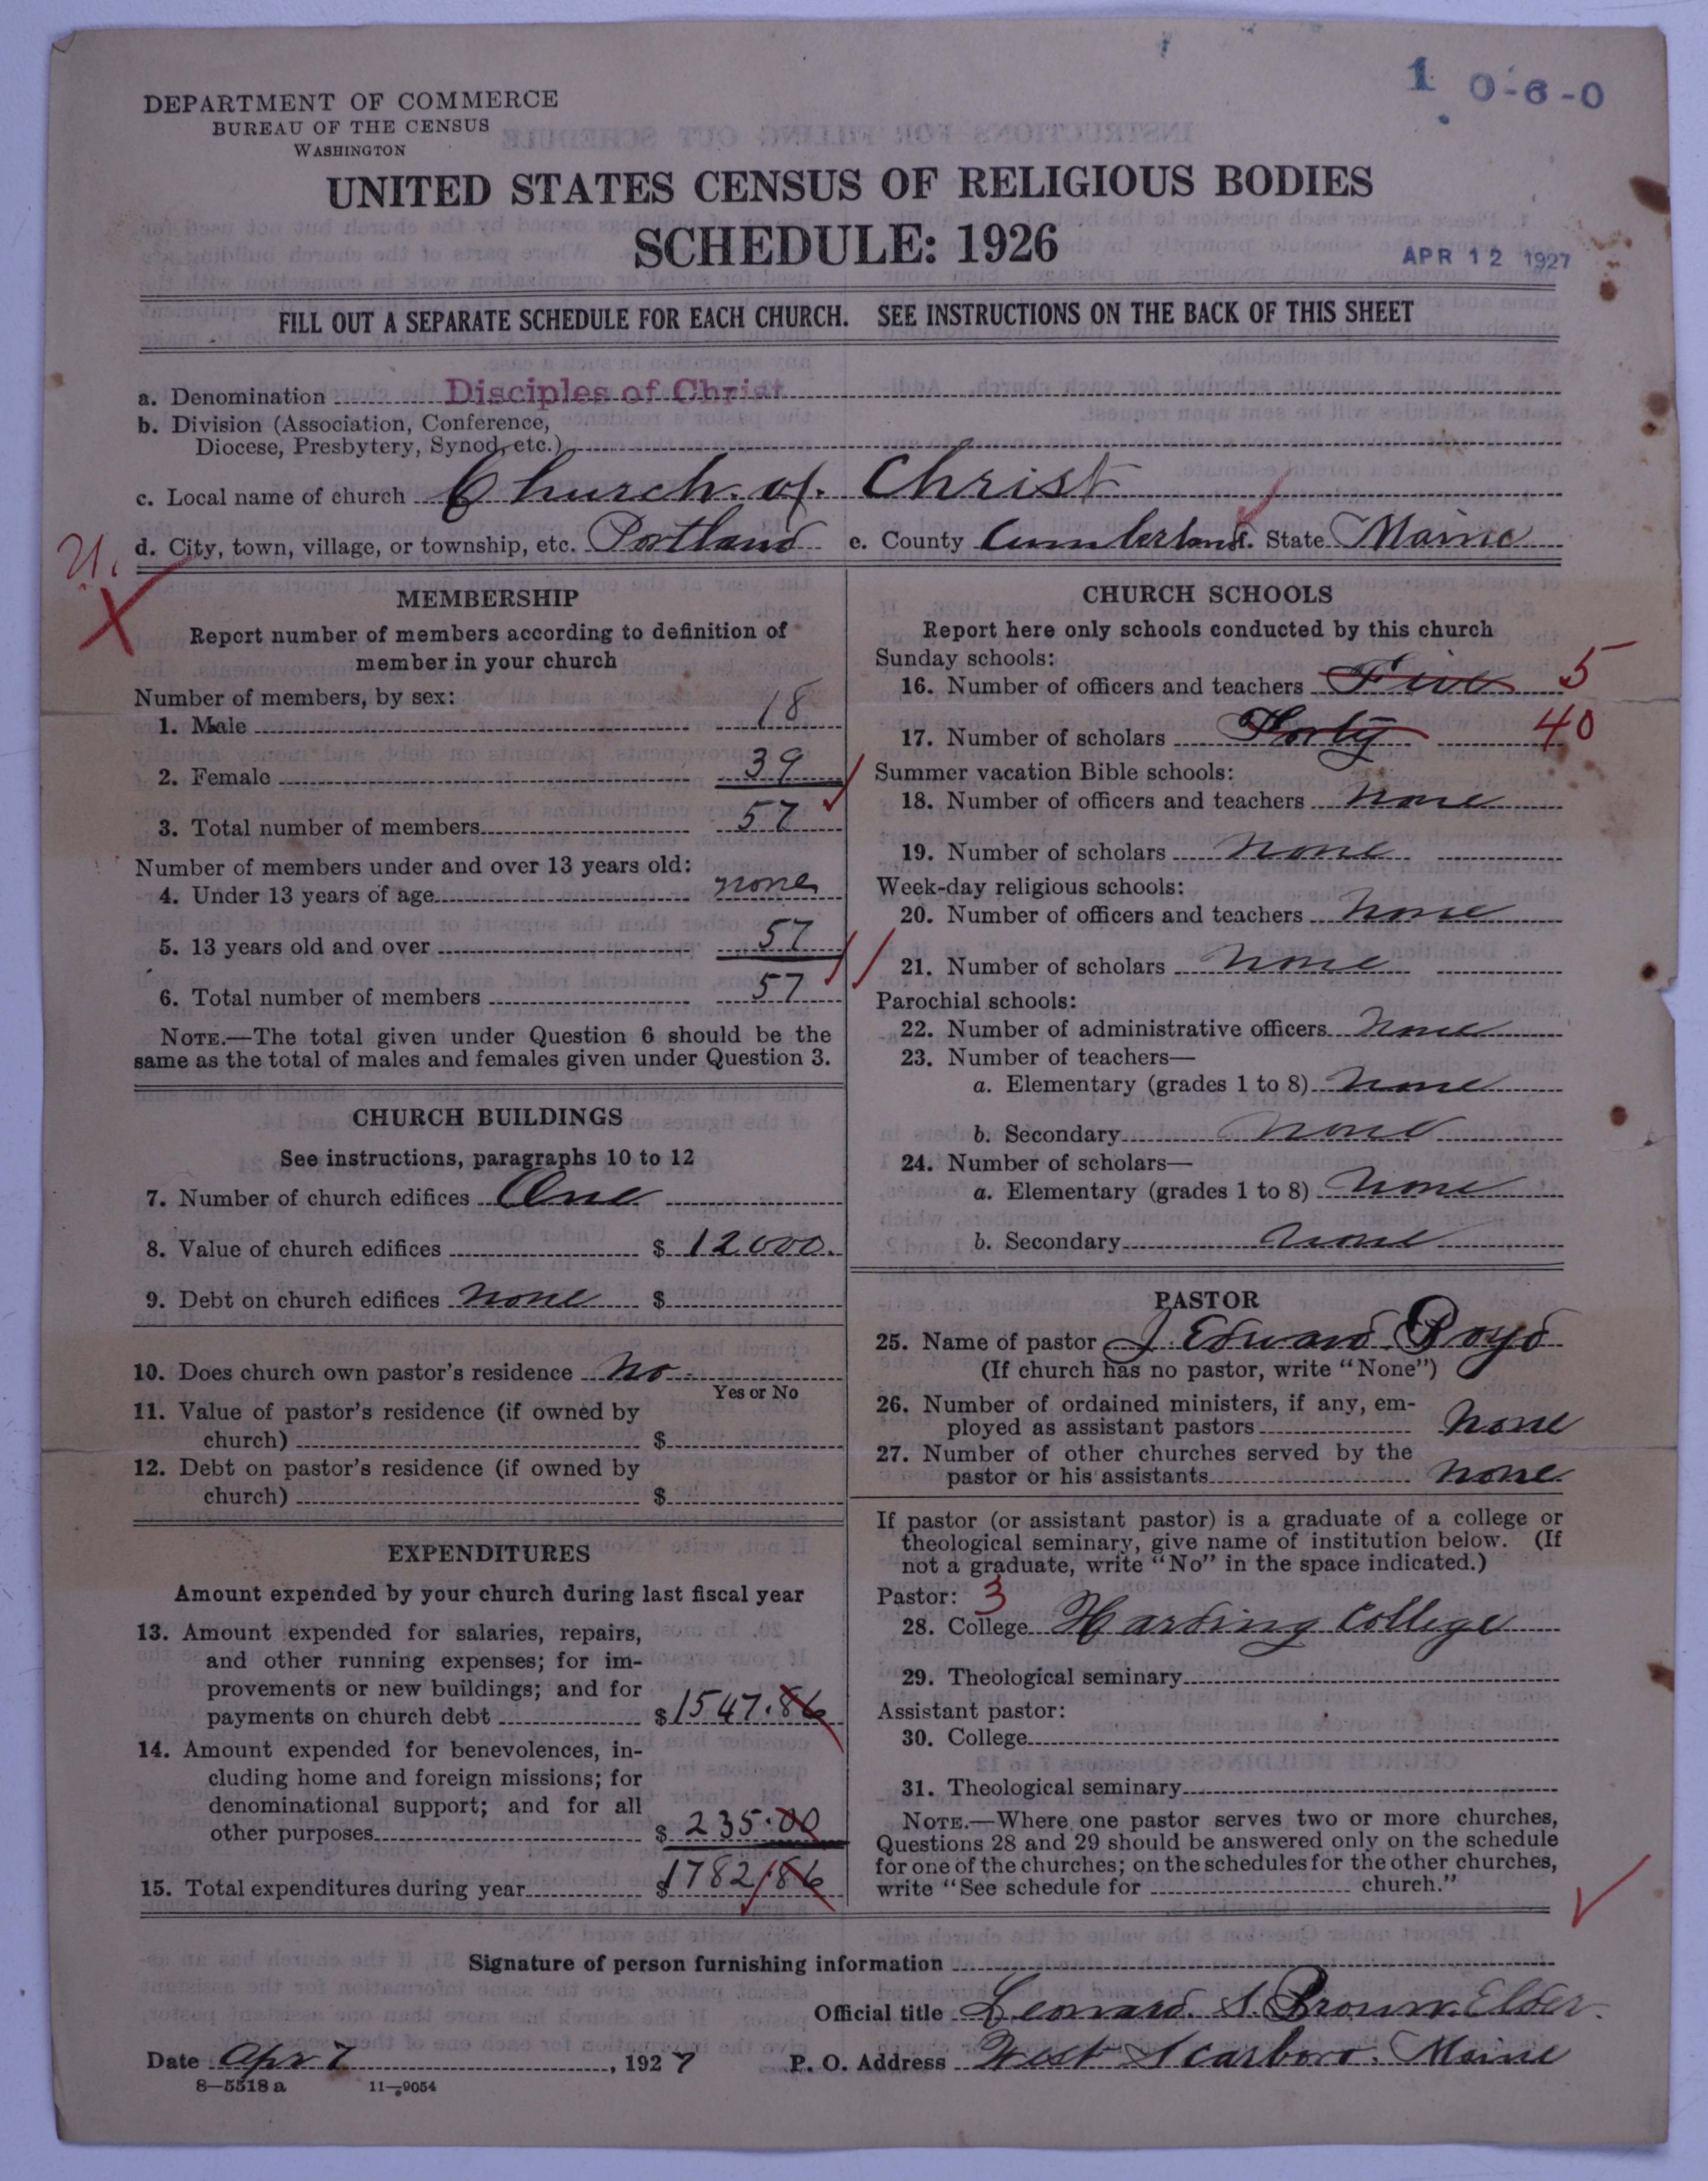 1 0-6-0
DEPARTMENT OF COMMERCE
BUREAU OF THE CENSUS
WASHINGTON
UNITED STATES CENSUS OF RELIGIOUS BODIES
SCHEDULE: 1926
APR 12 1927
FILL OUT A SEPARATE SCHEDULE FOR EACH CHURCH. SEE INSTRUCTIONS ON THE BACK OF THIS SHEET
a. Denomination Disciples of Christ
b. Division (Association, Conference,
Diocese, Presbytery, Synod, etc.)
c. Local name of church Church of Christ
d. City, town, village, or township, etc. Portland e. County Cumberland. State Maine
MEMBERSHIP
Report number of members according to definition of
member in your church
Number of members, by sex:
1. Male 18
2. Female 39
3. Total number of members 57
Number of members under and over 13 years old:
4. Under 13 years of age none
5. 13 years old and over 57
6. Total number of members 57
NOTE.—The total given under Question 6 should be the
same as the total of males and females given under Question 3.
CHURCH BUILDINGS
See instructions, paragraphs 10 to 12
7. Number of church edifices One
8. Value of church edifices $ 12000.
9. Debt on church edifices none $
10. Does church own pastor's residence No
Yes or No
11. Value of pastor's residence (if owned by
church) $
12. Debt on pastor's residence (if owned by
church) $
EXPENDITURES
Amount expended by your church during last fiscal year
13. Amount expended for salaries, repairs,
and other running expenses; for im-
provements or new buildings; and for
payments on church debt $1547.86
14. Amount expended for benevolences, in-
cluding home and foreign missions; for
denominational support; and for all
other purposes $ 235.00
15. Total expenditures during year $1782.86
CHURCH SCHOOLS
Report here only schools conducted by this church
Sunday schools:
16. Number of officers and teachers Five 5
17. Number of scholars Forty 40
Summer vacation Bible schools:
18. Number of officers and teachers none
19. Number of scholars none
Week-day religious schools:
20. Number of officers and teachers none
21. Number of scholars none
Parochial schools:
22. Number of administrative officers none
23. Number of teachers—
a. Elementary (grades 1 to 8) none
b. Secondary none
24. Number of scholars—
a. Elementary (grades 1 to 8) none
b. Secondary none
PASTOR
25. Name of pastor J. Edward Boyd
(If church has no pastor, write "None")
26. Number of ordained ministers, if any, em-
ployed as assistant pastors none
27. Number of other churches served by the
pastor or his assistants none
If pastor (or assistant pastor) is a graduate of a college or
theological seminary, give name of institution below. (If
not a graduate, write "No" in the space indicated.)
Pastor: 3
28. College Harding College
29. Theological seminary
Assistant pastor:
30. College
31. Theological seminary
NOTE.—Where one pastor serves two or more churches,
Questions 28 and 29 should be answered only on the schedule
for one of the churches; on the schedules for the other churches,
write "See schedule for church."
Signature of person furnishing information
Official title Leonard S. Brown. Elder.
Date Apr 7, 1927 P. O. Address West Scarboro. Maine
8—5518 a 11—9054